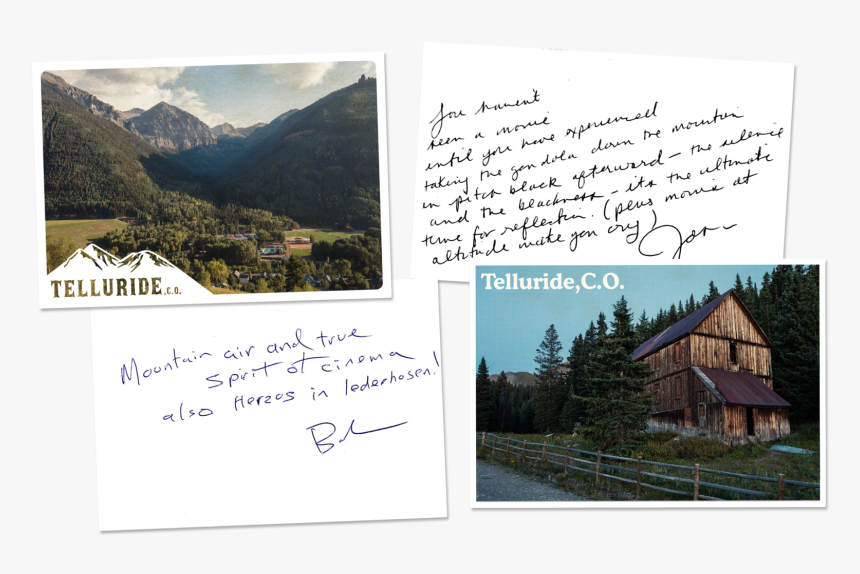 TELLURIDE, C.O.
You haven't
seen a movie
until you have experienced
taking the gondola down the mountain
in pitch black afterward – the silence
and the blackness – its the ultimate
time for reflection. (plus movie at
altitude make you cry)
Telluride,C.O.
Mountain air and true
spirit of cinema
also Herzog in lederhosen!